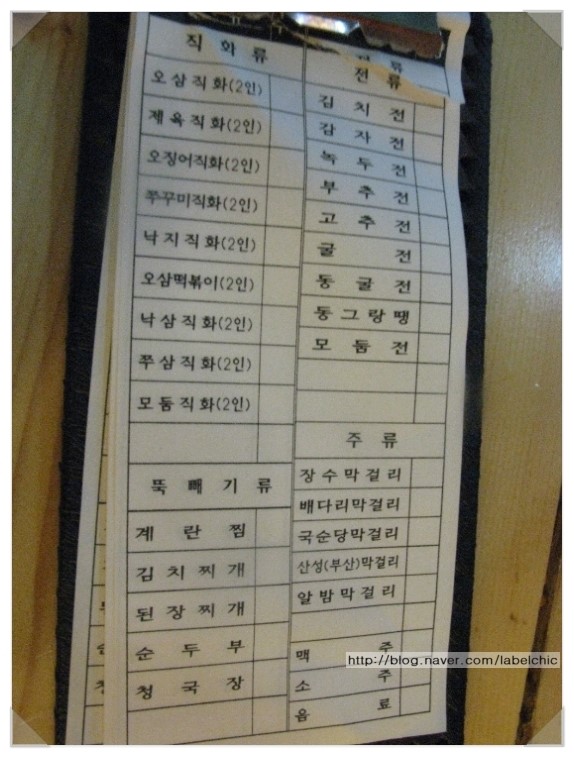 직화류
오삼직화(2인)
제육직화(2인)
오징어직화(2인)
쭈꾸미직화(2인)
낙지직화(2인)
오삼떡볶이(2인)
낙삼직화(2인)
쭈삼직화(2인)
모둠직화(2인)
뚝빼기류
계란찜
김치찌개
된장찌개
순두부
청국장
전류
김치전
감자전
녹두전
부추전
고추전
굴전
동굴전
동그랑땡
모둠전
주류
장수막걸리
배다리막걸리
국순당막걸리
산성(부산)막걸리
알밤막걸리
맥주
소주
음료
http://blog.naver.com/labelchic